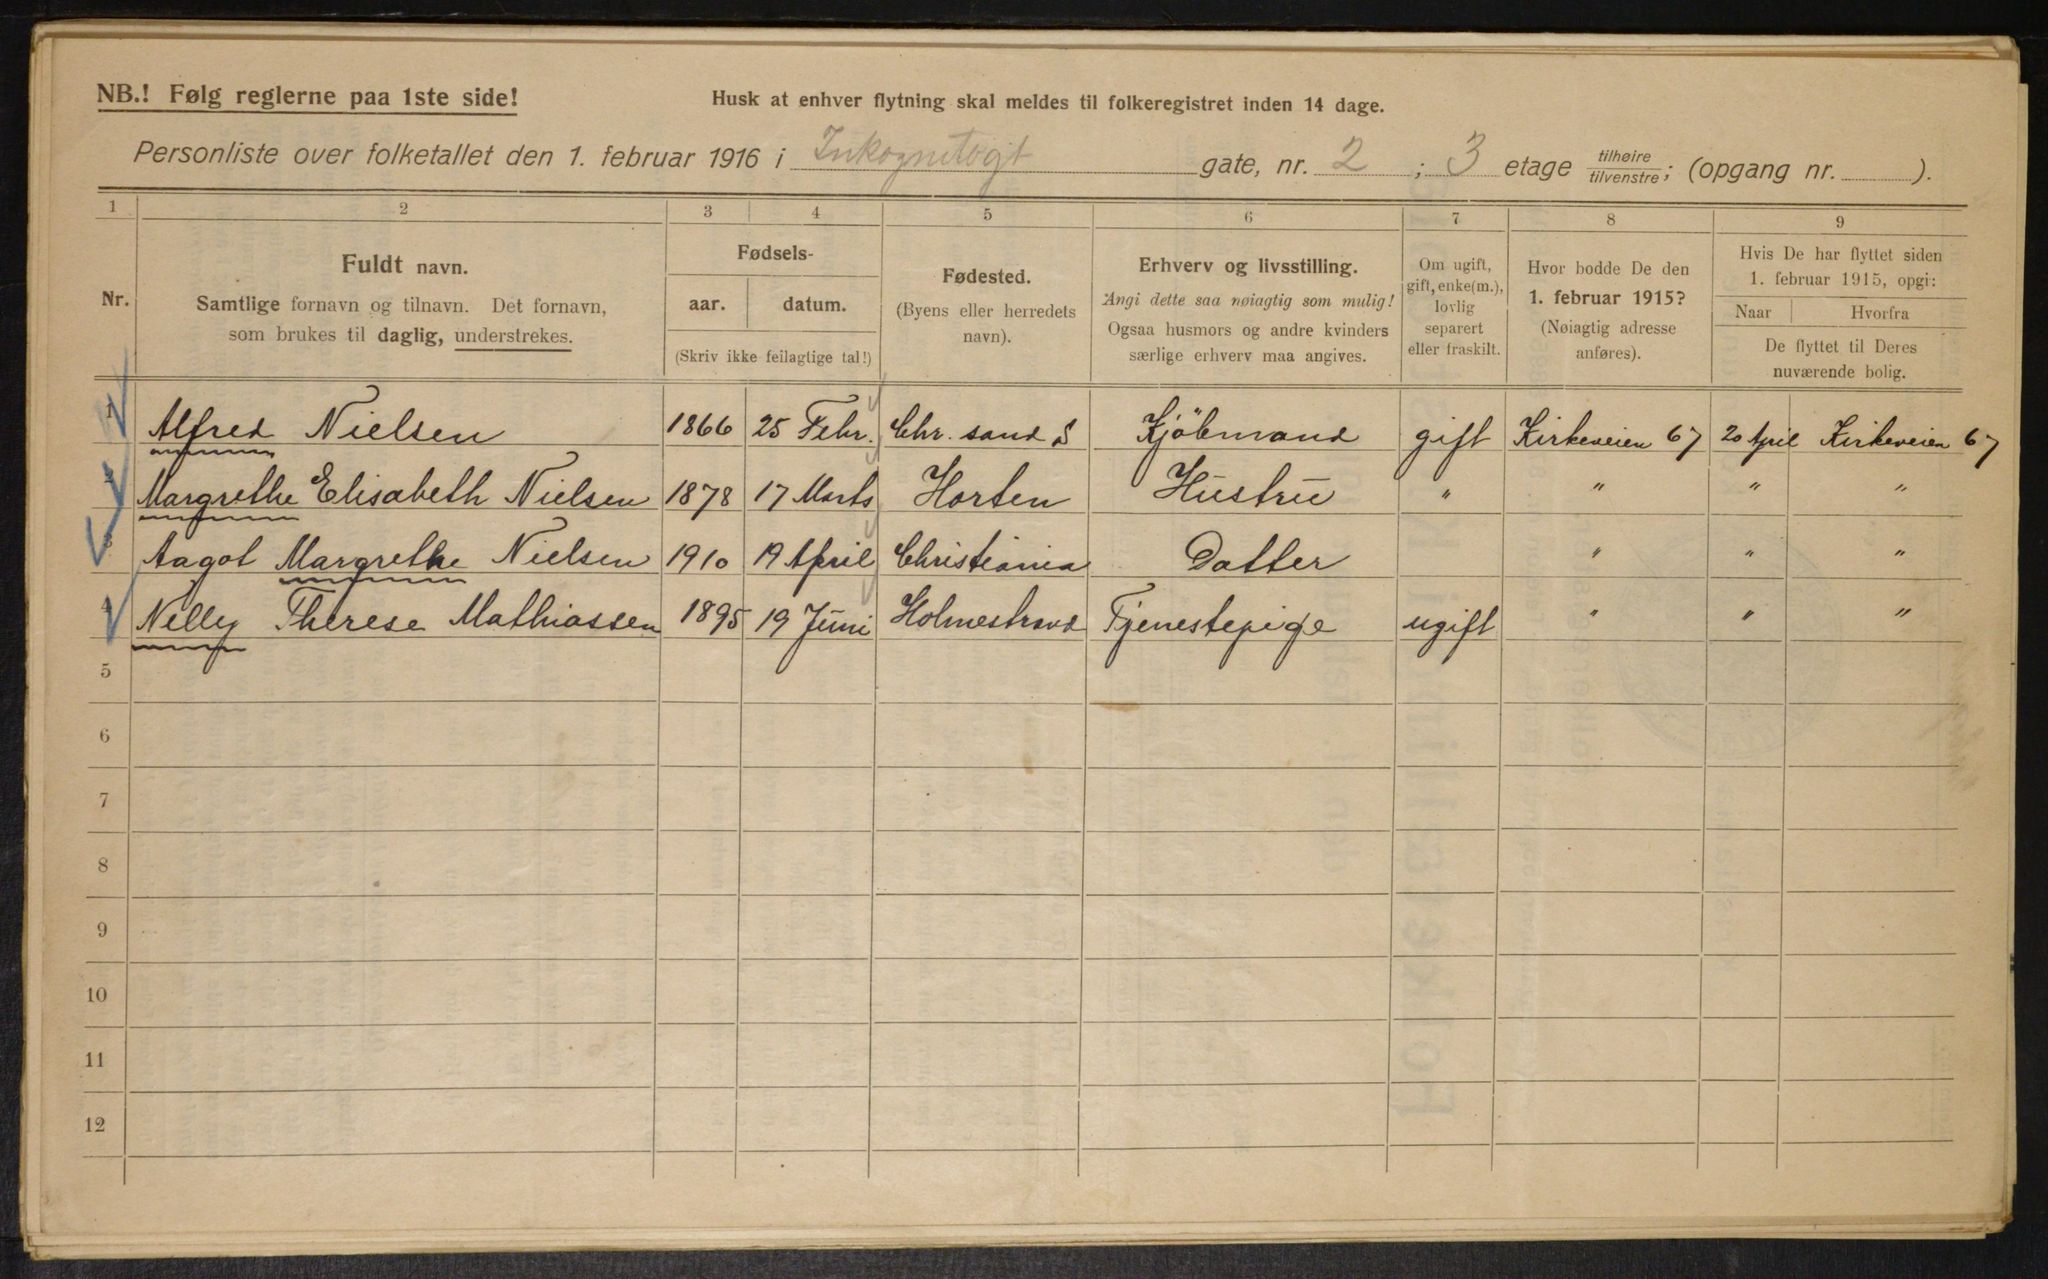 NB.! Følg reglerne paa 1ste side!
Husk at enhver flytning skal meldes til folkeregistret inden 14 dage.
Personliste over folketallet den 1. februar 1916 i Inkognitogt gate, nr. 2 ; 3 etage tilhøire tilvenstre; (opgang nr. ).
1 2 3 4 5 6 7 8 9
Nr.
Fuldt navn.
Samtlige fornavn og tilnavn. Det fornavn,
som brukes til daglig, understrekes.
Fødsels-
aar. datum.
(Skriv ikke feilagtige tal!)
Fødested.
(Byens eller herredets
navn).
Erhverv og livsstilling.
Angi dette saa nøiagtig som mulig!
Ogsaa husmors og andre kvinders
særlige erhverv maa angives.
Om ugift,
gift, enke(m.),
lovlig
separert
eller fraskilt.
Hvor bodde De den
1. februar 1915?
(Nøiagtig adresse
anføres).
Hvis De har flyttet siden
1. februar 1915, opgi:
Naar Hvorfra
De flyttet til Deres
nuværende bolig.
1 Alfred Nielsen 1866 25 Febr. Chr. sand S Kjöbmand gift Kirkeveien 67 20 April Kirkeveien 67
2 Margrethe Elisabeth Nielsen 1878 17 Marts Horten Hustru " " " "
3 Aagot Margrethe Nielsen 1910 19 April Christiania Datter " " "
4 Nelly Therese Mathiassen 1895 19 Juni Holmestrand Tjenestepige ugift " " "
5
6
7
8
9
10
11
12